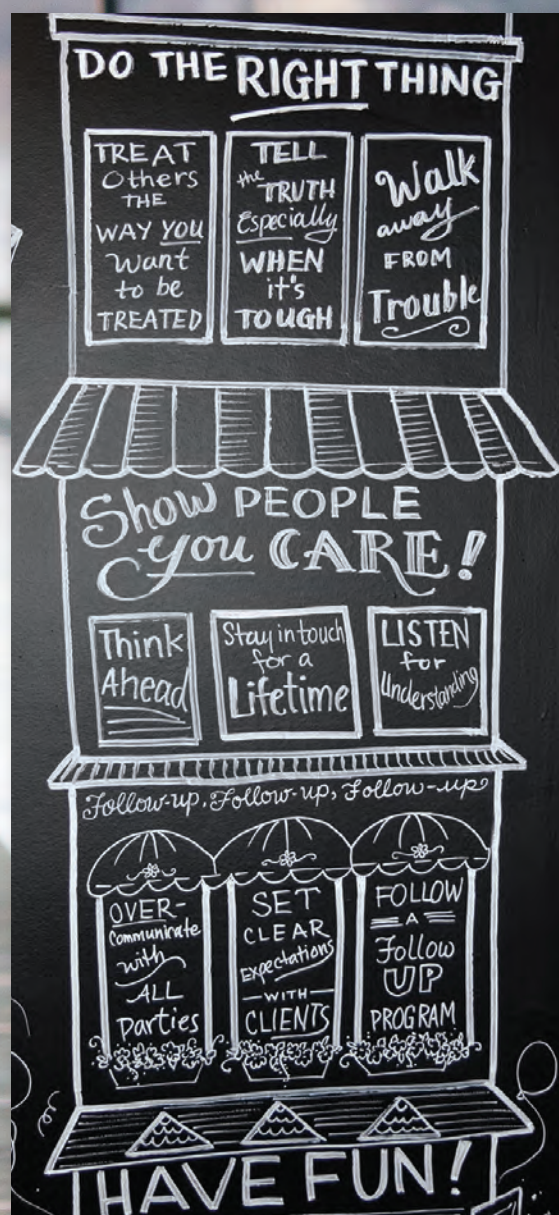 DO THE RIGHT THING
TREAT
Others
THE
WAY YOU
Want
to be
TREATED
TELL
the TRUTH
Especially
WHEN
it's
TOUGH
Walk
away
FROM
Trouble
Show PEOPLE
you CARE!
Think
Ahead
Stay in touch
for a
Lifetime
LISTEN
for
Understanding
Follow-up, Follow-up, Follow-up
OVER-
Communicate
with
ALL
Parties
SET
CLEAR
Expectations
WITH
CLIENTS
FOLLOW
A
Follow
UP
PROGRAM
HAVE FUN!